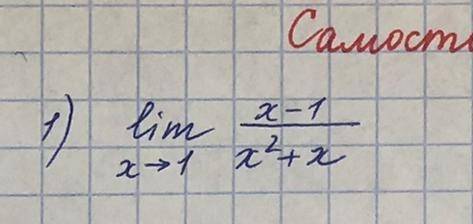 Самост
1) lim x→1 (x-1)/(x²+x)